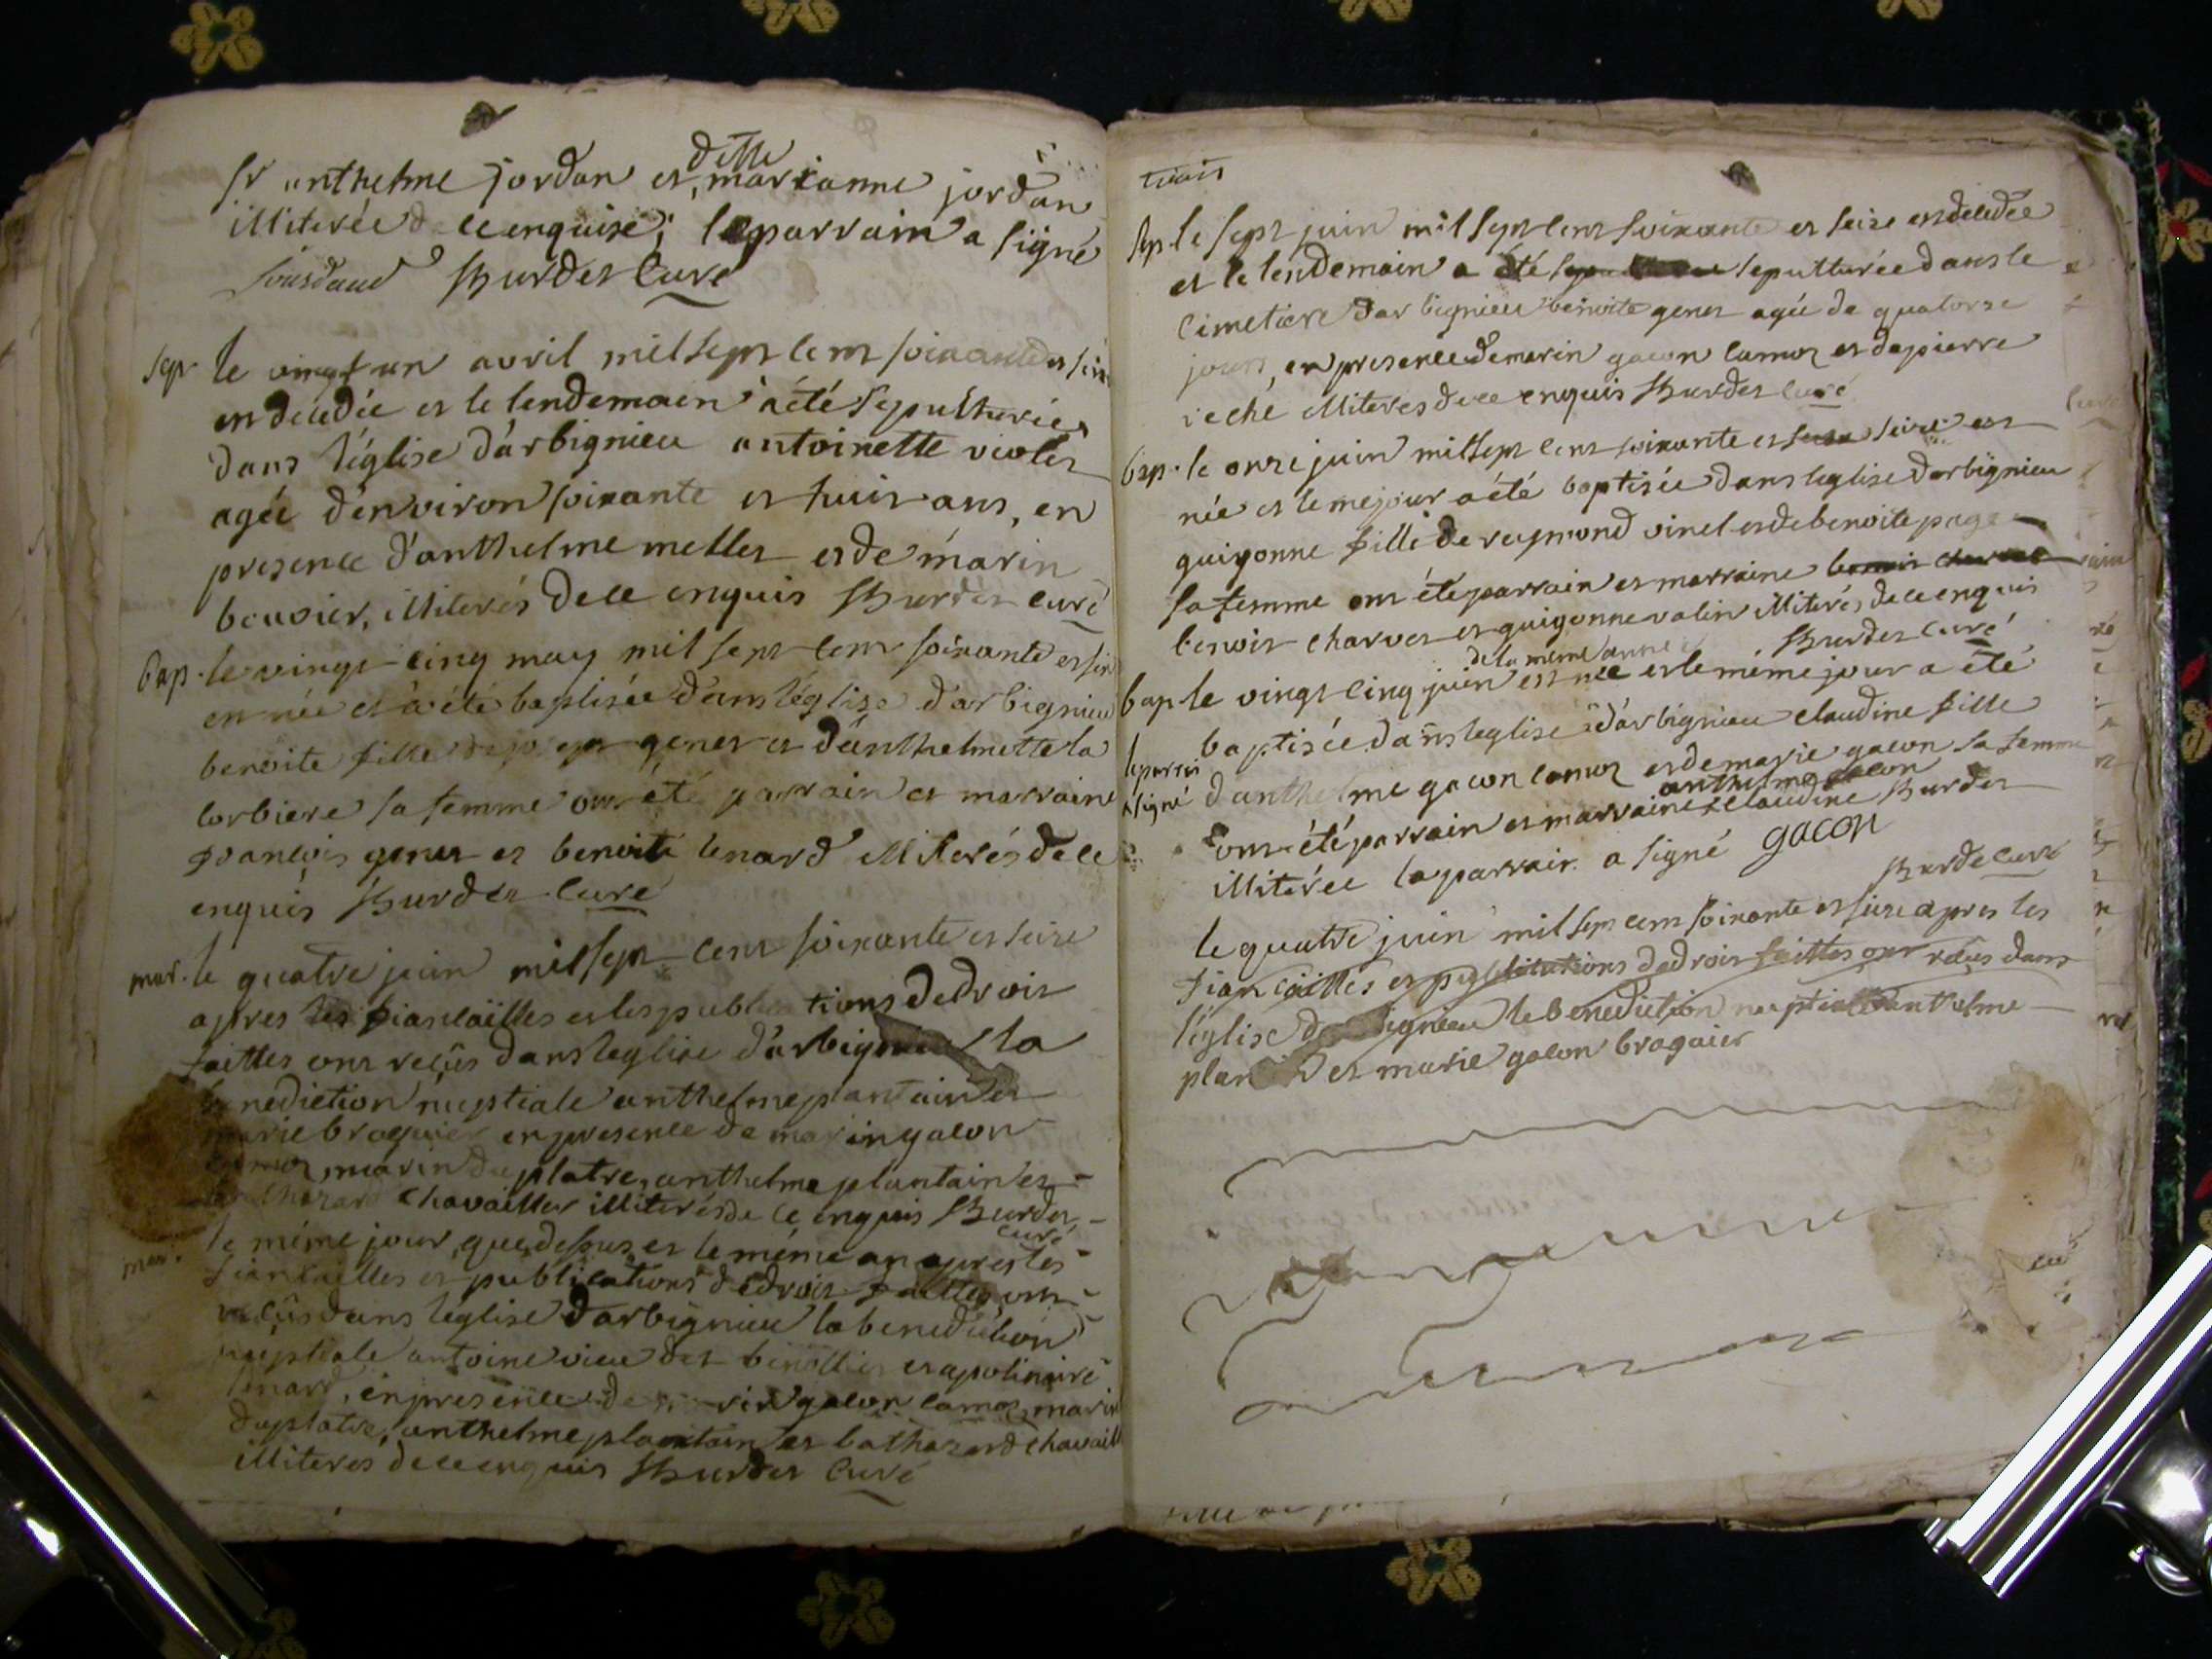 Sr anthelme jordan et dette marianne jordan
illiterée de ce enquise; le parrain a signé
Burdet Curé
sep. le vingt un avril mil sept cent soixante et seize
est decedée et le lendemain a été sepulturée
dans l'église d'arbignieu antoinette violet
agée d'environ soixante et huit ans, en
presence d'anthelme mellet et de marin
bouvier, illiterés de ce enquis Burdet curé
bap. le vingt cinq may mil sept cent soixante et seize
est née et a été baptisée dans l'église d'arbignieu
benoite fille de genet et d'anthelmette la
corbiere sa femme ont été parrain et marraine
françois genet et benoite lenard illiterés de ce
enquis Burdet Curé
mar. le quatre juin mil sept cent soixante et seize
apres les fiancailles et les publications de droit
faittes ont reçûs dans leglise d'arbignieu la
benediction nuptiale anthelme plantain et
marie broquier en presence de marin gacon
camoz, marin du platre, anthelme plantain et
balthazard chavaillet illiterés de ce enquis Burdet
curé
mar. le même jour que dessus et le même an apres les
fiancailles et publications de droit faittes ont
reçûs dans léglise d'arbignieu la benediction
nuptiale antoine vieu dit et apolinaire
lenard, en presence de marin gacon camoz, marin
duplatre, anthelme plantain et balthazard chavaill
illiteres de ce enquis Burdet Curé
trois
sep. le sept juin mil sept cent soixante et seize est decedée
et le lendemain a été sepulturée dans le
cimetiere d'arbignieu benoite genet agée de quatorze
jours, en presence de marin gacon camoz et de pierre
reché illiteres de ce enquis Burdet curé
bap. le onze juin mil sept cent soixante et seize est
née et le me jour a été baptisée dans leglise d'arbignieu
guigonne fille de reymond vinel et de benoite page
sa femme ont été parrain et marraine
benoit charvet et guigonne valin illiterés de ce enquis
Burdet curé
de la meme année
bap le vingt cinq juin est née et le méme jour a été
baptisée dans leglise d'arbignieu claudine fille
d'anthelme gacon camoz et de marie gacon sa femme
le parrain
a signé
anthelme gacon
ont été parrain et marraine et claudine Burdet
illiterée le parrain a signé gacon
Burdet Curé
le quatre juin mil sept cent soixante et seize apres les
fiancailles et publications de droit faittes ont reçus dans
l'églisé d'arbignieu la benediction nuptiale anthelme
plantain et marie gacon broquier